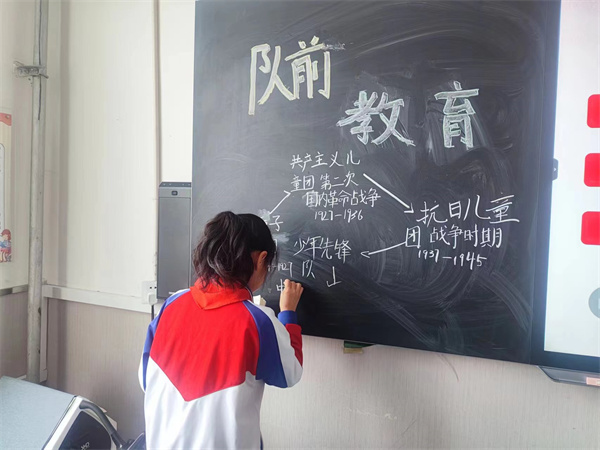 队前
教育
共产主义儿
童团 第二次
国内革命战争
1927-1936
抗日儿童
团 战争时期
1937-1945
子
少年先锋
队